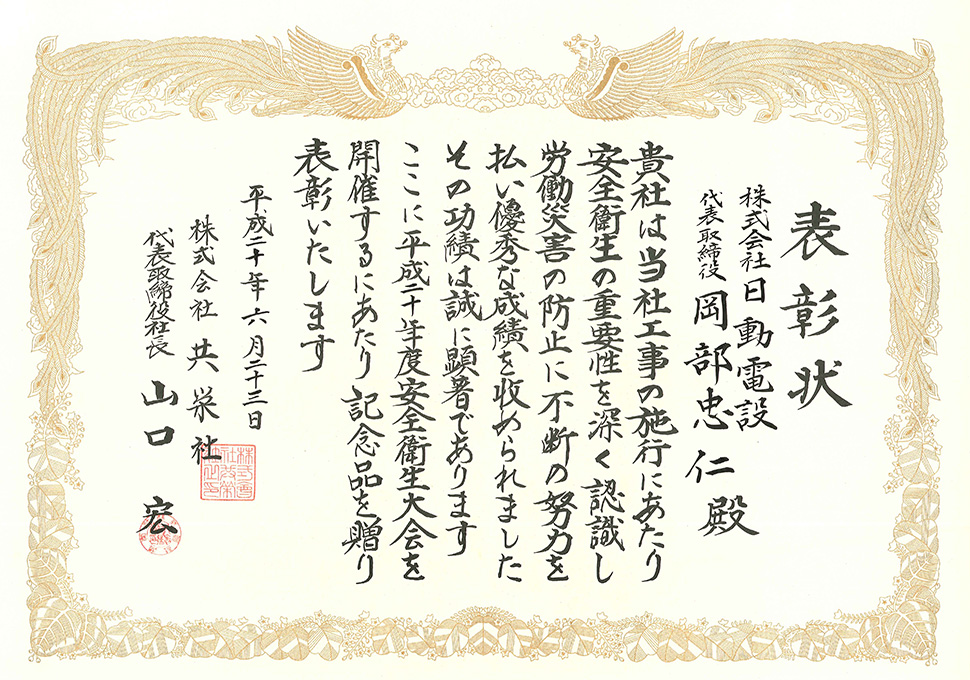 表彰状
株式会社日動電設
代表取締役 岡部忠仁殿
貴社は当社工事の施行にあたり
安全衛生の重要性を深く認識し
労働災害の防止に不断の努力を
払い優秀な成績を収められました
その功績は誠に顕著であります
ここに平成二十年度安全衛生大会を
開催するにあたり記念品を贈り
表彰いたします
平成二十年六月二十三日
株式会社 共栄社
代表取締役社長 山口 宏